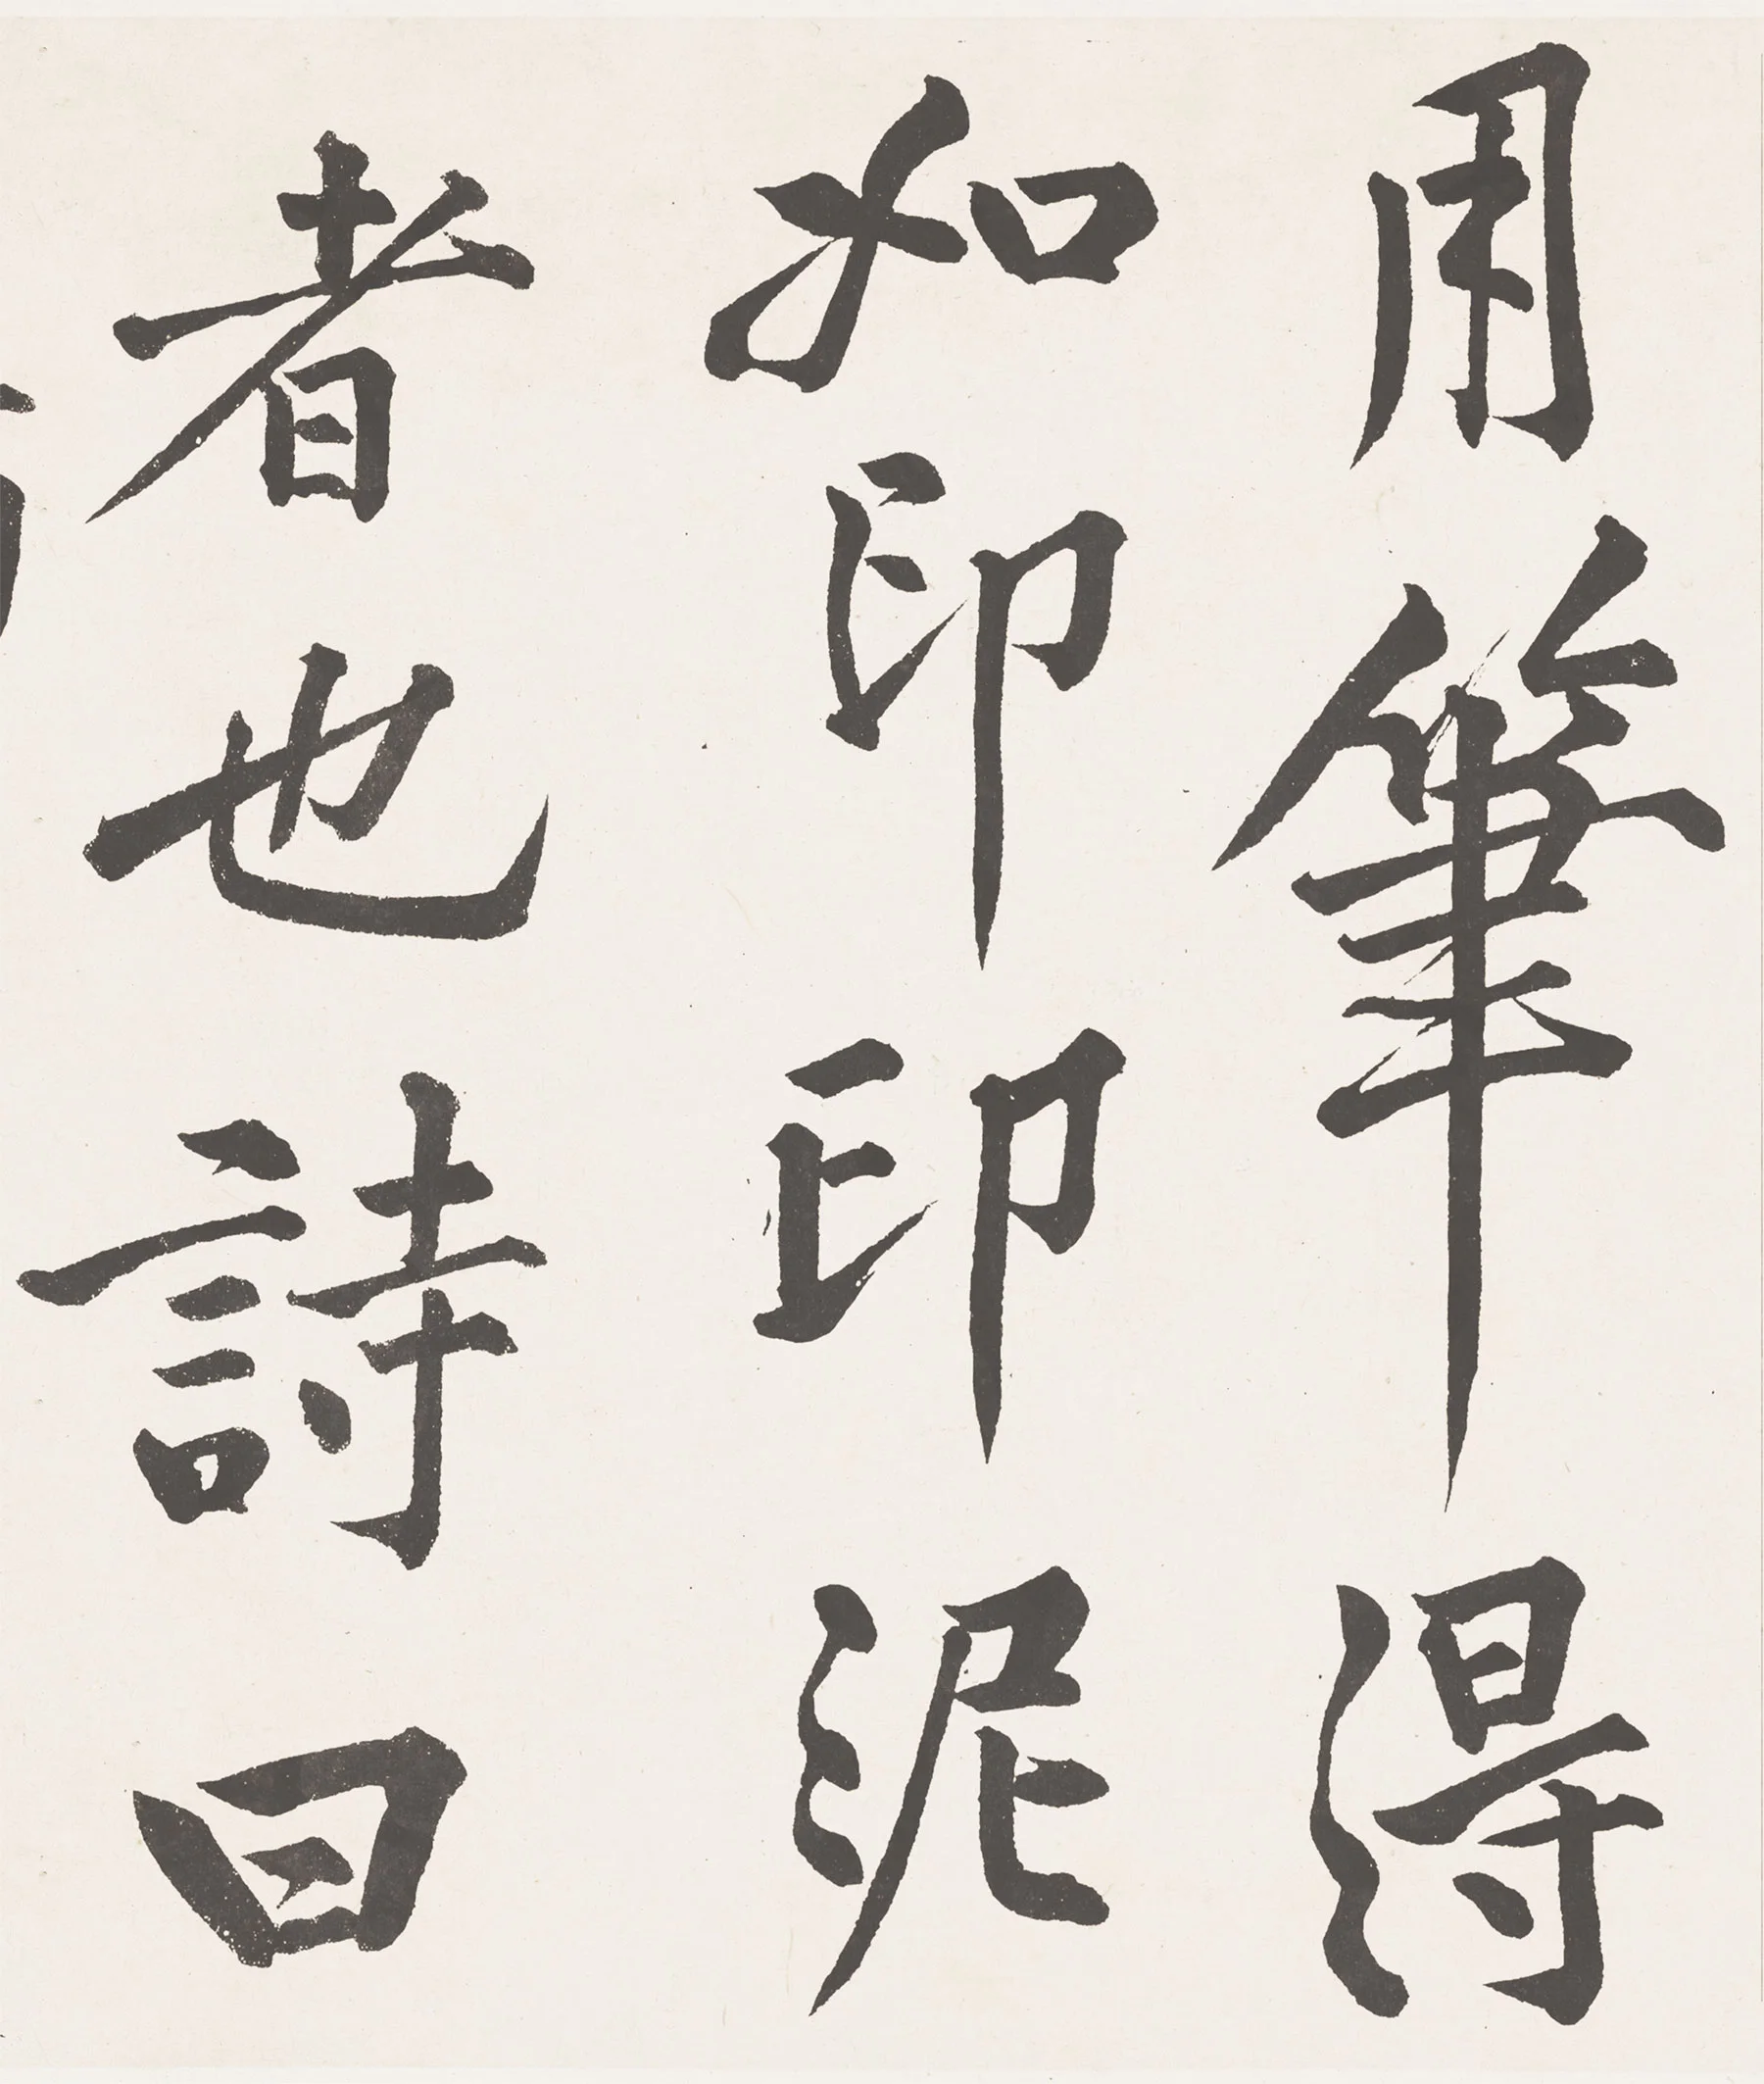 用筆得
如印印泥
者也詩曰